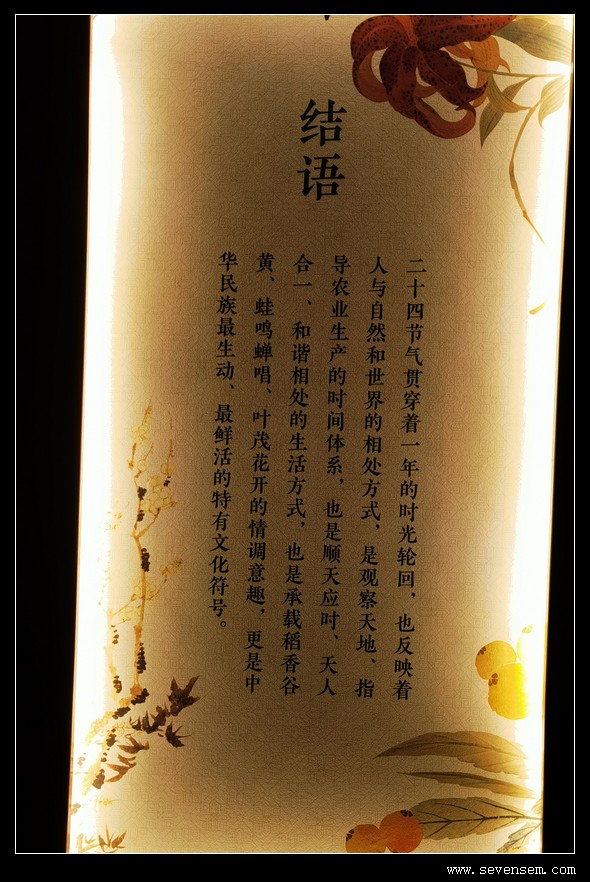 结语
二十四节气贯穿着一年的时光轮回，也反映着
人与自然和世界的相处方式，是观察天地、指
导农业生产的时间体系，也是顺天应时、天人
合一、和谐相处的生活方式，也是承载稻香谷
黄、蛙鸣蝉唱、叶茂花开的情调意趣，更是中
华民族最生动、最鲜活的特有文化符号。
www.sevensem.com